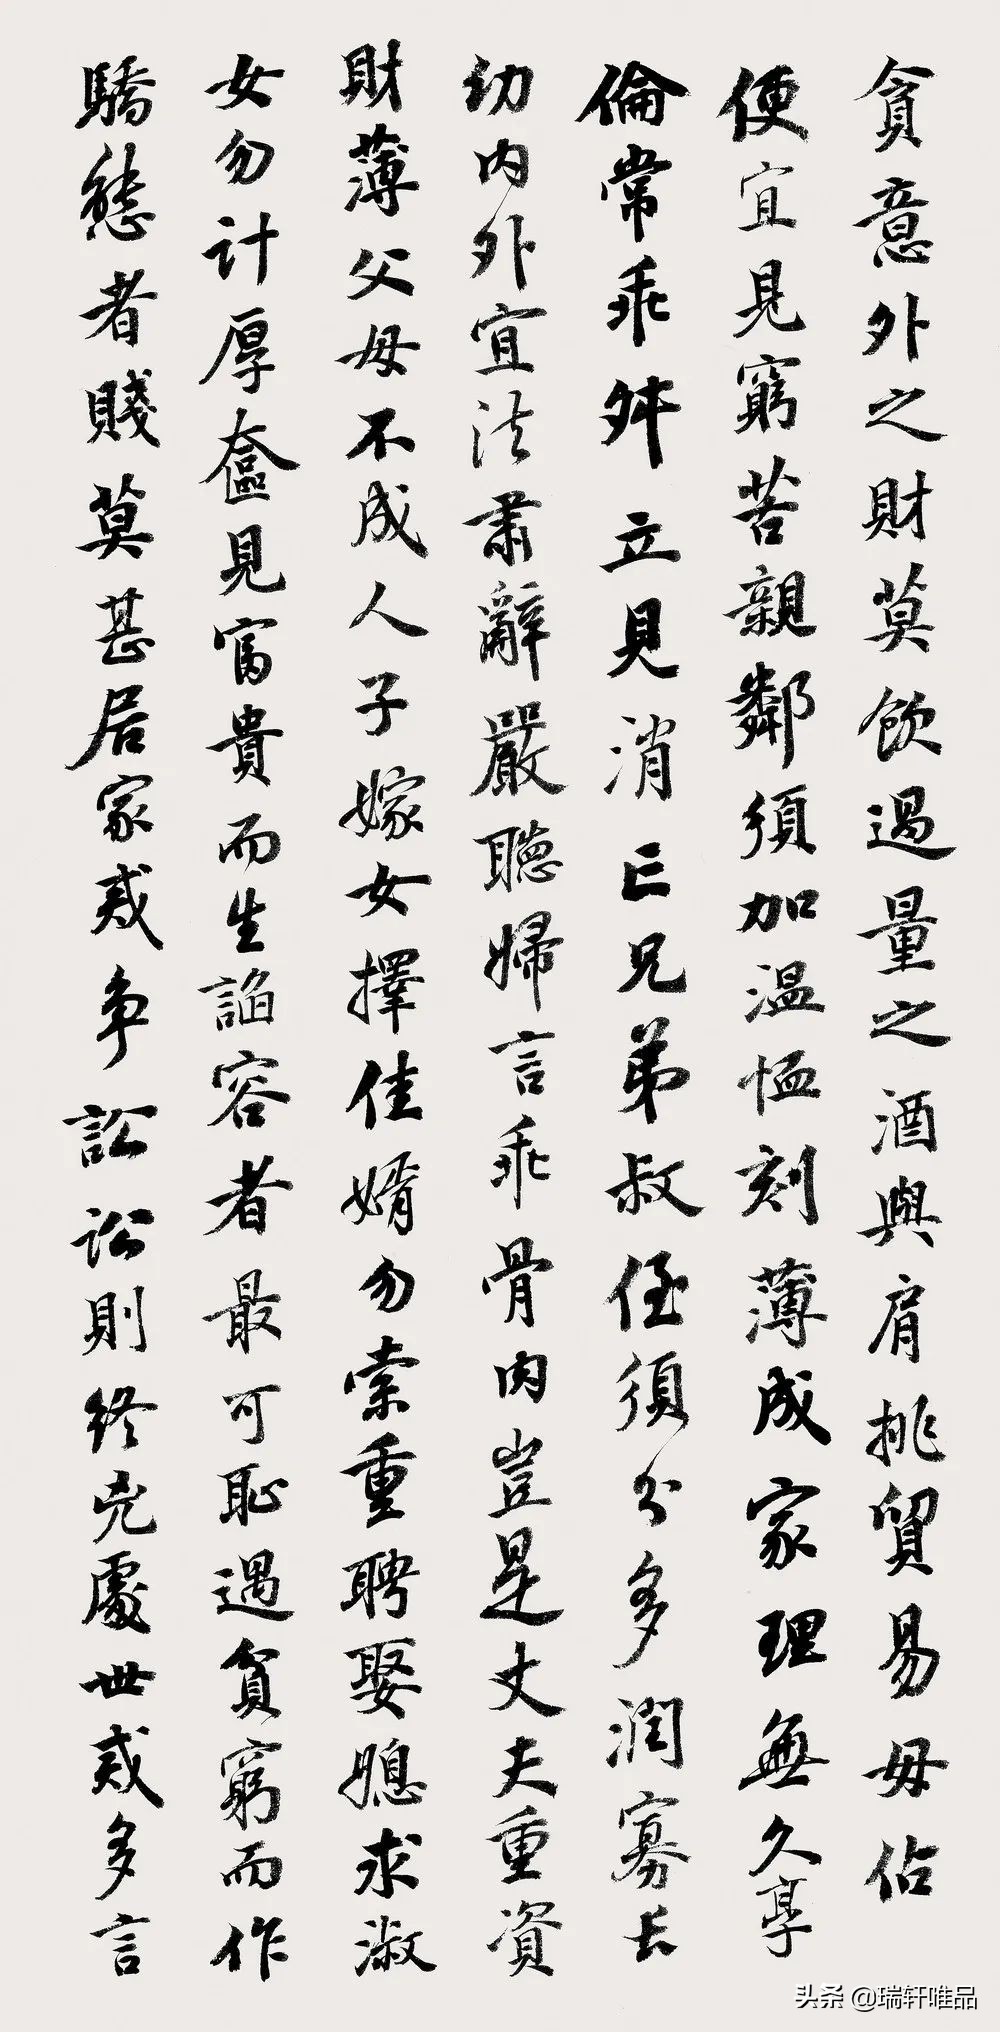 貪意外之財莫飲過量之酒與肩挑貿易毋佔
便宜見窮苦親鄰須加溫恤刻薄成家理無久享
倫常乖舛立見消亡兄弟叔侄須分多潤寡長
幼內外宜法肅辭嚴聽婦言乖骨肉豈是丈夫重資
財薄父母不成人子嫁女擇佳婿勿索重聘娶媳求淑
女勿計厚奩見富貴而生諂容者最可恥遇貧窮而作
驕態者賤莫甚居家戒爭訟訟則終兇處世戒多言
头条 @瑞轩唯品